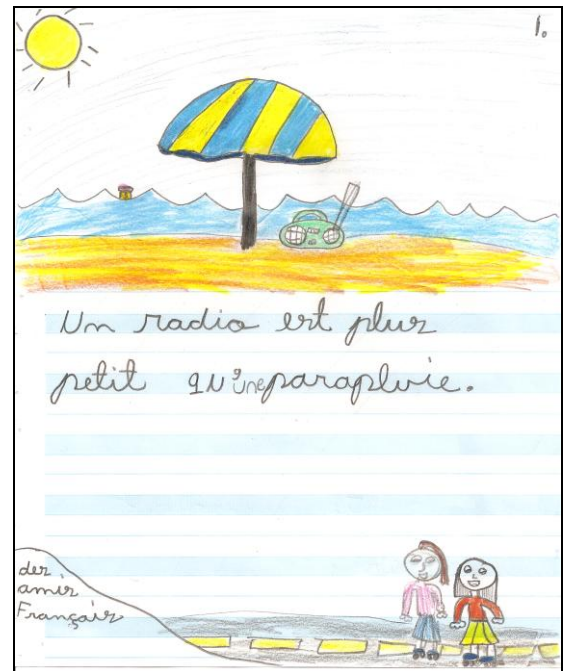 1.
Un radio est plus
petit qu'une parapluie.
des
amis
Français